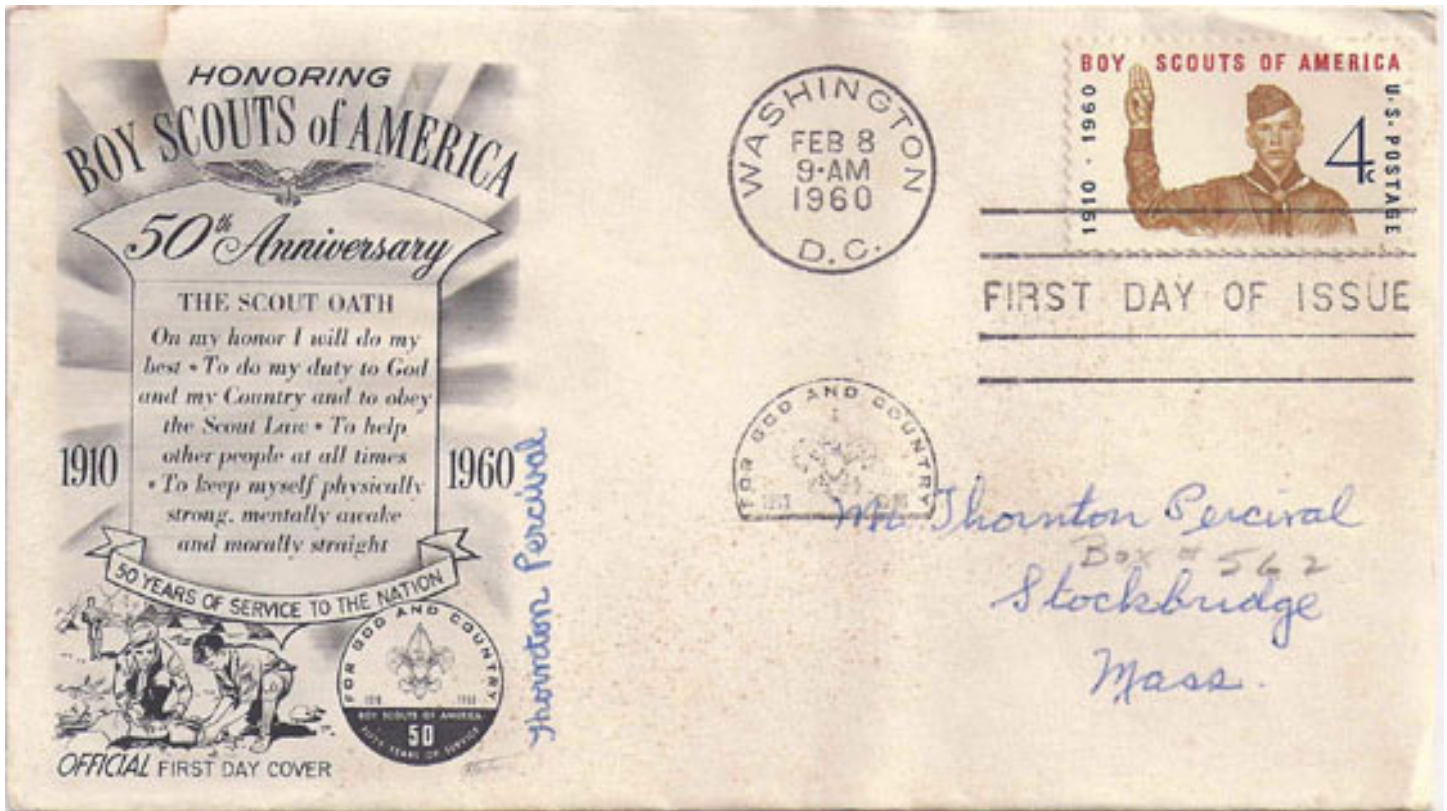 HONORING
BOY SCOUTS of AMERICA
50th Anniversary
THE SCOUT OATH
On my honor I will do my
best • To do my duty to God
and my Country and to obey
the Scout Law • To help
other people at all times
• To keep myself physically
strong, mentally awake
and morally straight
1910
1960
50 YEARS OF SERVICE TO THE NATION
FOR GOD AND COUNTRY
1910 1960
BOY SCOUTS OF AMERICA
50
FIFTY YEARS OF SERVICE
OFFICIAL FIRST DAY COVER
Thornton Percival
WASHINGTON
FEB 8
9-AM
1960
D.C.
BOY SCOUTS OF AMERICA
1910 · 1960
4c
U·S·POSTAGE
FIRST DAY OF ISSUE
FOR GOD AND COUNTRY
Mr Thornton Percival
Box # 562
Stockbridge
Mass.